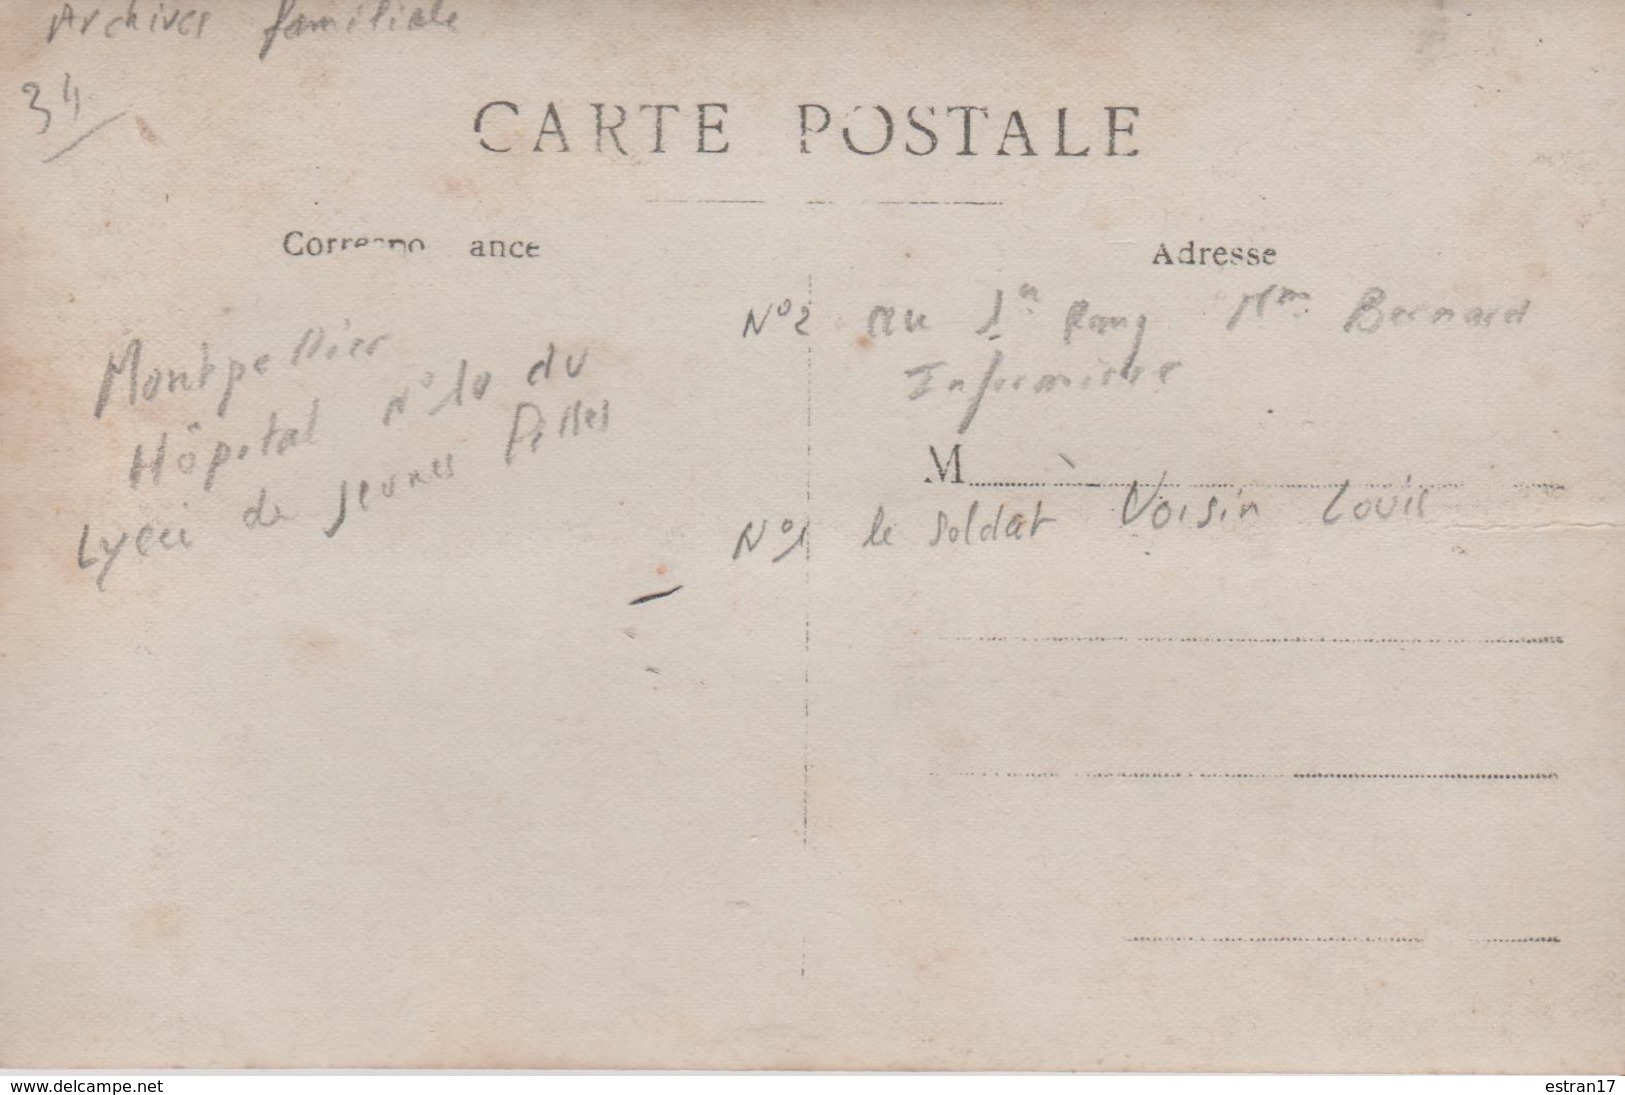 Archives familiale
34
CARTE POSTALE
Correspo ance
Adresse
Montpellier
Hôpital N°10 du
Lyceé de Jeunes Filles
N°2 au 1er Rang Mme Bernard
Infirmière
M
N°1 le soldat Voisin Louis
www.delcampe.net
estran17